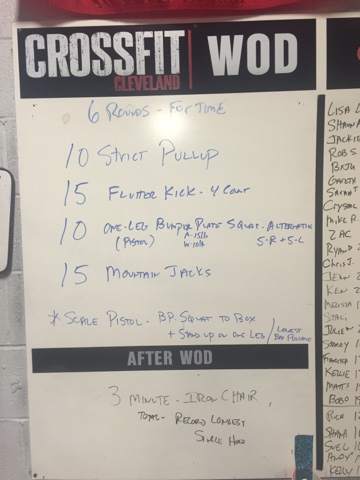 CROSSFIT
CLEVELAND
WOD
6 ROUNDS - FOR TIME
10 STRICT PULLUP
15 FLUTTER KICK - 4 COUNT
10 ONE-LEG BUMPER PLATE SQUAT - ALTERNATING
(PISTOL) M-15lb 5-R + 5-L
W-10lb
15 MOUNTAIN JACKS
* SCALE PISTOL - BP SQUAT TO BOX
+ STAND UP ON ONE LEG / LOWEST
BOX POSSIBLE
AFTER WOD
3 MINUTE - IRON CHAIR
TOTAL - RECORD LONGEST
SINGLE HOLD
LISA
SHAWNA
JACKIE
ROB S
CRYSTAL
MIKE P.
ZAC
RYAN
CHRIS J.
JEN
KEN
MELISSA
STACI
STACEY
FRANCISCO
KELLIE
MATT
BOBO
RICH
SHANA
ANDY
KELLY